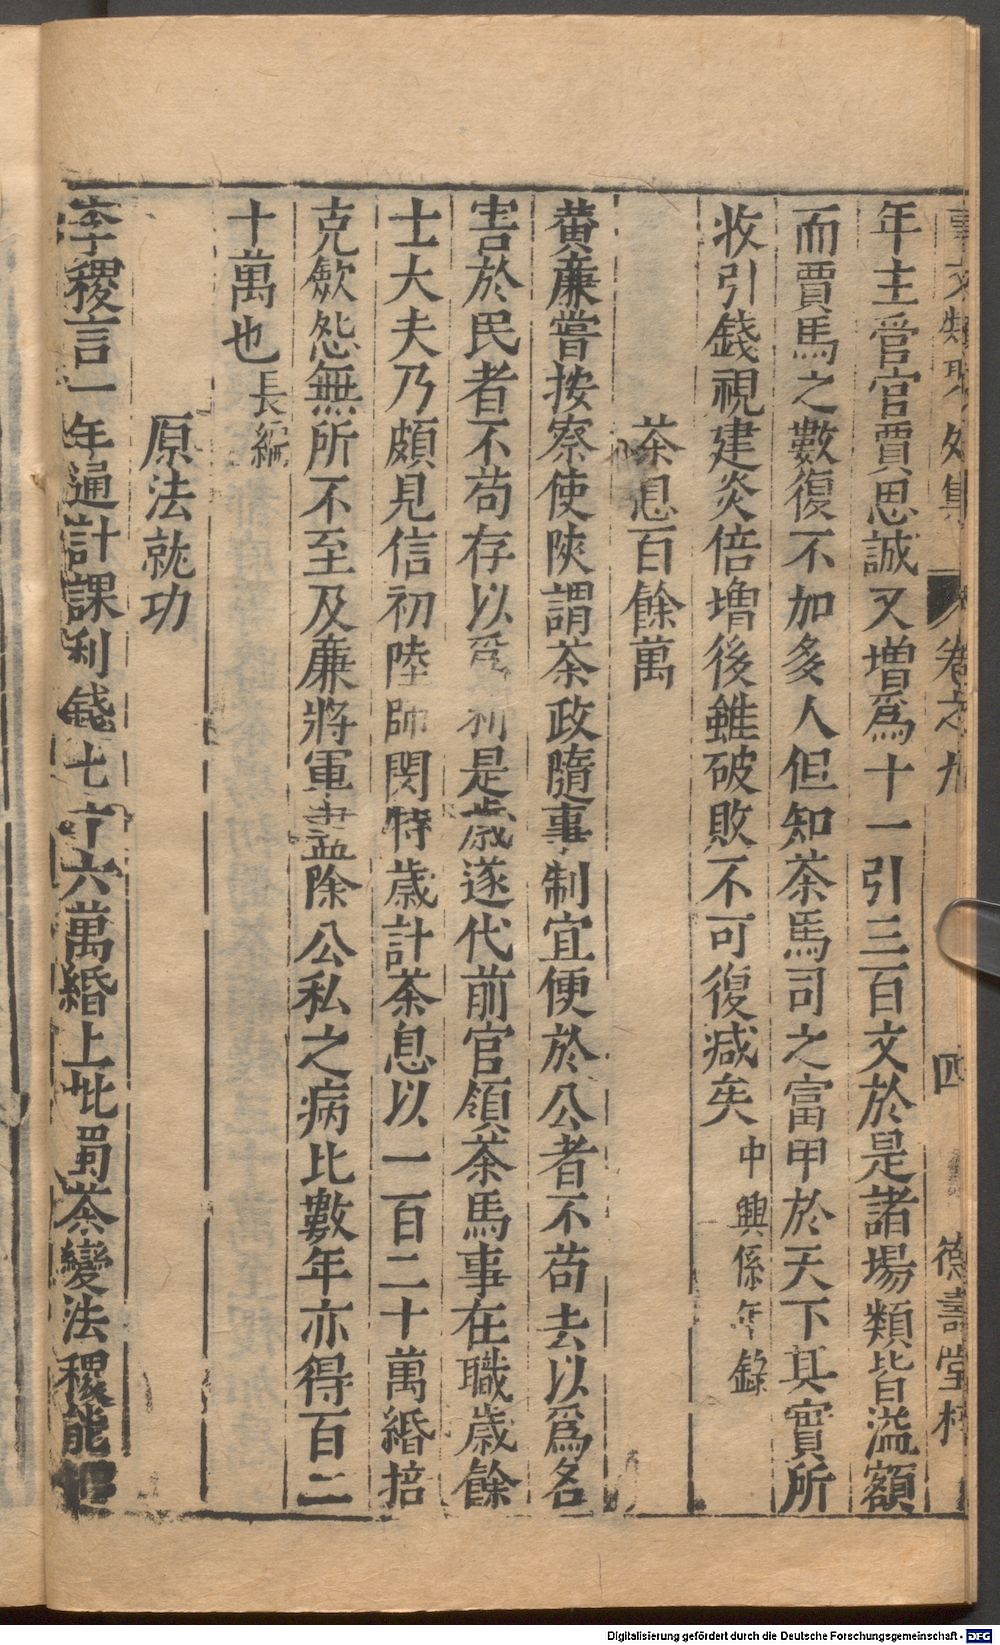 事文類聚外集 卷之九 四 德壽堂梓
年主管官賈思誠又增爲十一引三百文於是諸場類皆溢額
而賈馬之數復不加多人但知茶馬司之富甲於天下其實所
收引錢視建炎倍增後雖破敗不可復减矣 中興係年錄
茶息百餘萬
黄廉嘗按察使陜謂茶政隨事制宜便於公者不苟去以爲名
害於民者不苟存以爲利是歲遂代前官領茶馬事在職歲餘
士大夫乃頗見信初陸師閔特歲計茶息以一百二十萬緡掊
克歛怨無所不至及廉將軍盡除公私之病比數年亦得百二
十萬也 長編
原法就功
李稷言一年通計課利錢七十六萬緡上批蜀茶變法稷能
Digitalisierung gefördert durch die Deutsche Forschungsgemeinschaft - DFG